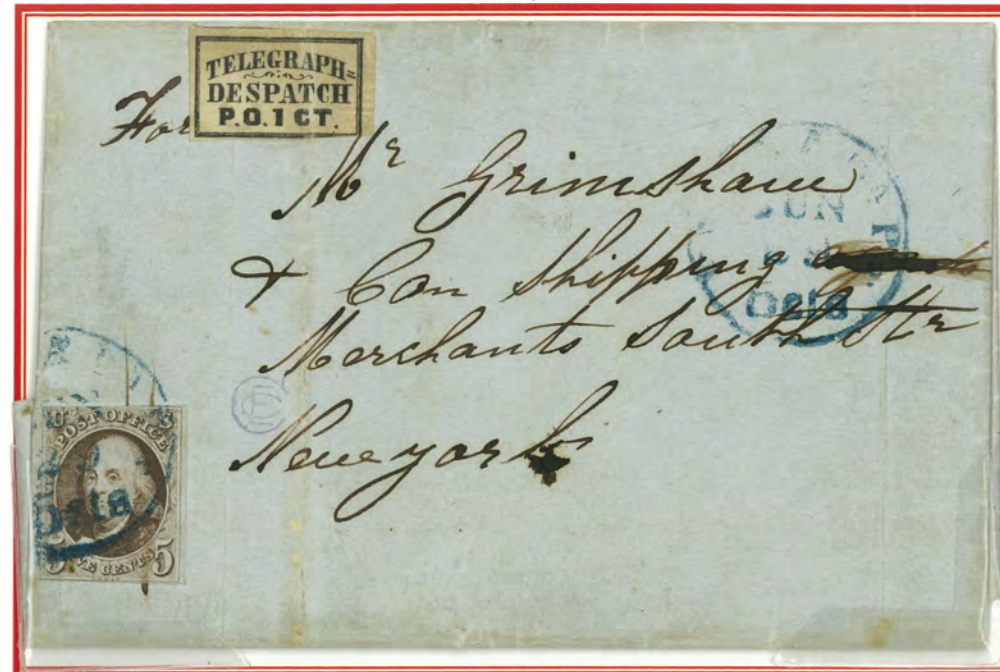 TELEGRAPH=
DESPATCH
P.O. 1 CT.
For
Mr Grimshaw
& Con Shipping
Merchants South Str
New york
JUN
5cts
U S
POST OFFICE
5cts
5 FIVE CENTS 5